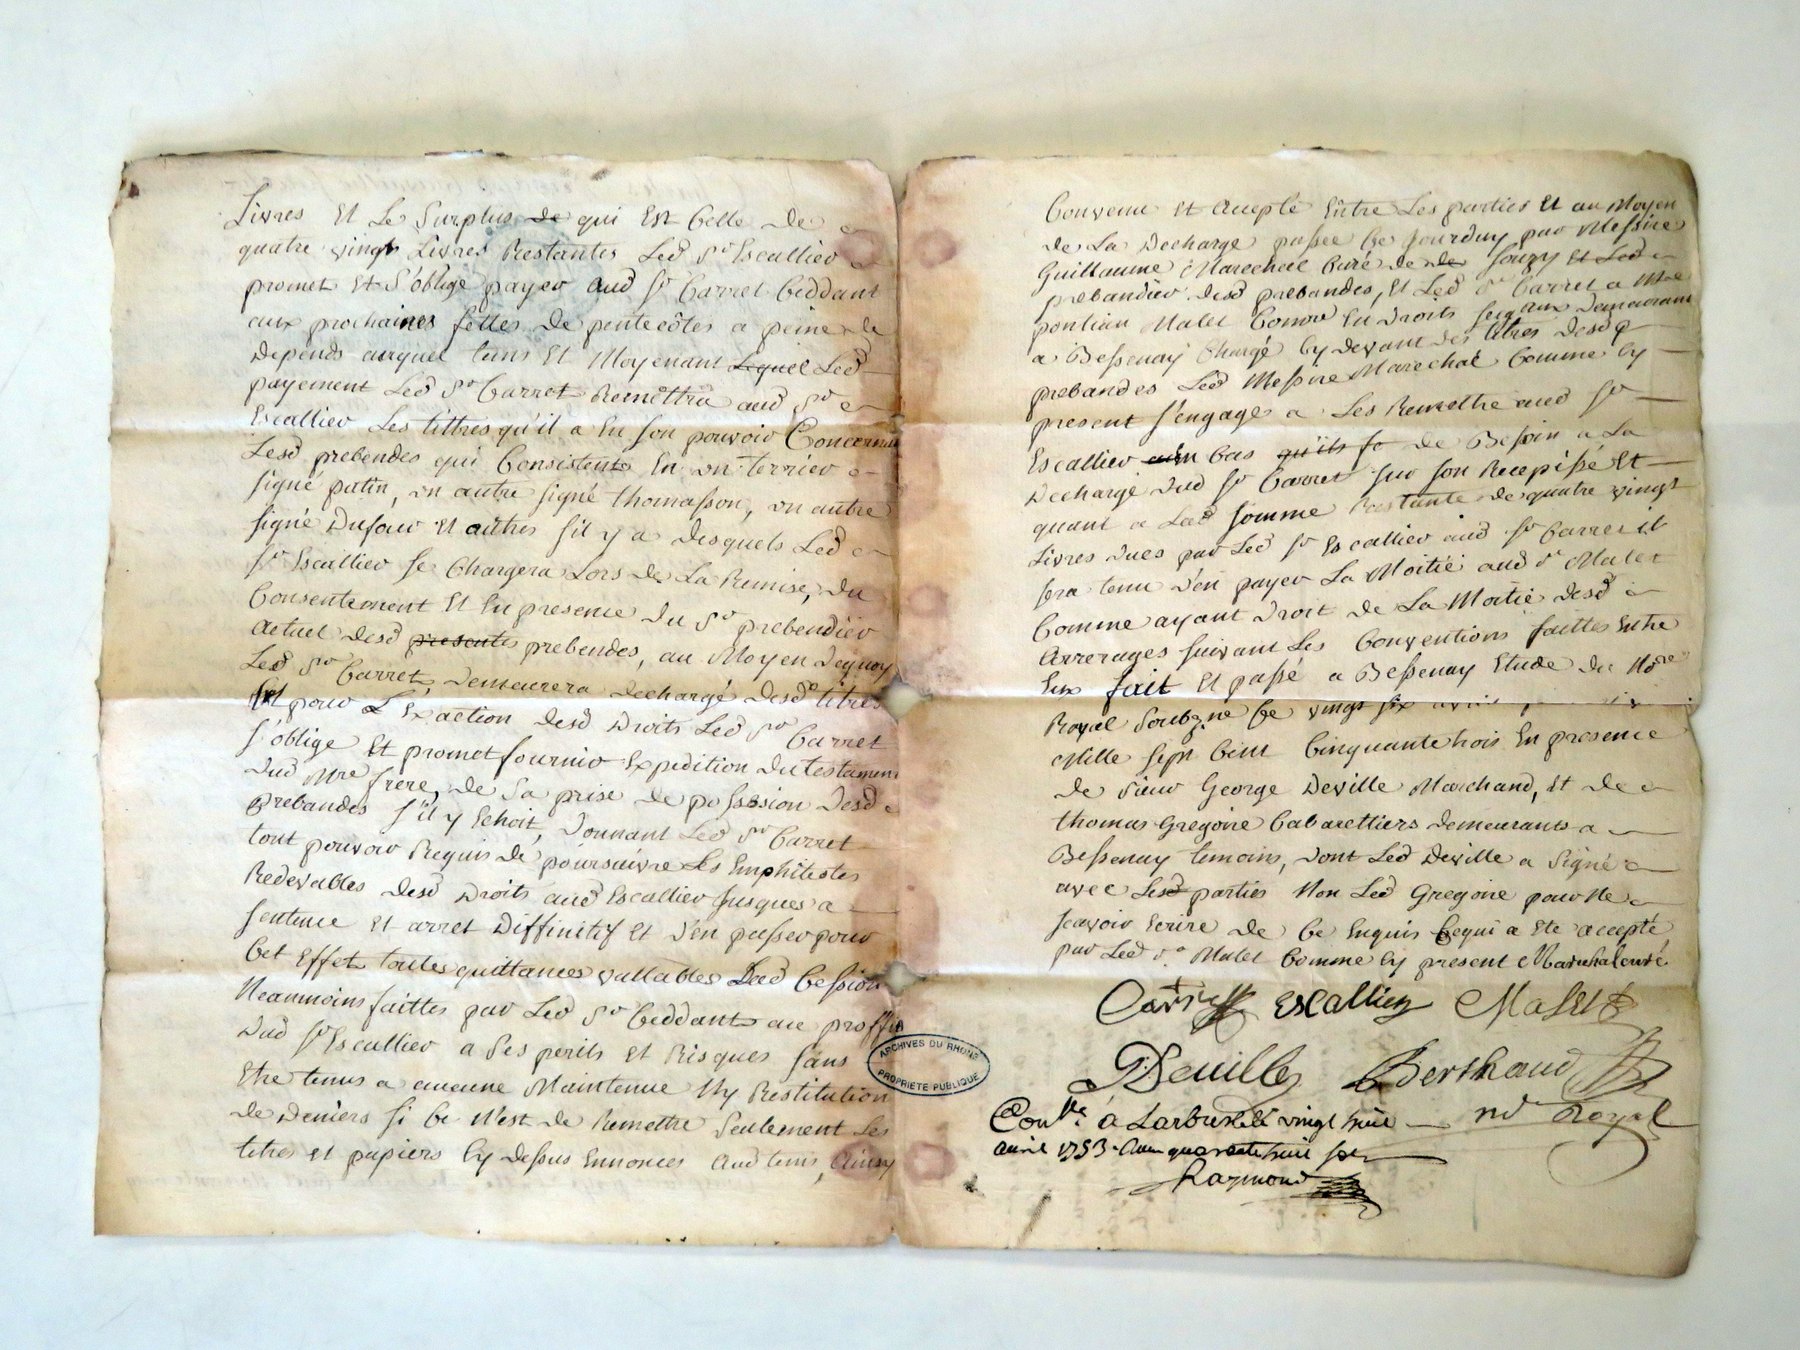 Livres Et Le Surplus de qui Est Celle de
quatre vingt Livres Restantes Led Sr Escallier
promet Et S'oblige payer Aud Sr Carret Ceddant
aux prochaines fettes de pentecôtes a peine de
Depends auquel tems Et Moyenant Lequel Led
payement Led Sr Carret Remettra aud Sr
Escallier Les tittres qu'il a En son pouvoir Concernant
Lesd prebendes qui Consistents En un terrier
signé patin, un autre signé thomasson, un autre
signé Dufour Et autres s'il y a desquels Led
Sr Escallier se Chargera Lors de La Remise, du
Consentement Et En presence du Sr prebendier
actuel desd presentes prebendes, au Moyen dequoy
Led Sr Carret, demeurera dechargé desd titres
Et pour L'Exaction desd Droits Led Sr Carret
s'oblige Et promet fournir Expedition du testament
dud Mre frere, de Sa prise de possession desd
prebandes s'il y Echoit, donnant Led Sr Carret
tout pouvoir Requis de poursuivre Les Emphiteotes
Redevables desd Droits aud Escallier Jusques a
sentence Et arret Diffinitif Et d'en passer pour
Cet Effet toutes quittances vallables Lad Cession
Neanmoins faittes par Led Sr Ceddant au proffit
dud Sr Escallier a Ses perils Et Risques sans
Etre tenus a aucune Maintenue Ny Restitution
de Deniers si Ce N'est de Remettre Seulement Les
titres Et papiers Cy dessus Ennoncés Aud tems, Ainsy
Convenu Et Accepté Entre Les parties Et au Moyen
de La Decharge passée Ce Jourduy par Messire
Guillaume Marechal Curé de de Souzy Et Led
prebandier desd prebandes, Et Led Sr Carret a Mre
pontian Malet Comre En Droits seigaux Demeurant
a Bessenay Chargé Cy devant des titres desd
prebandes Led Messire Marechal Comme Cy
present s'engage a Les Remettre aud Sr
Escallier en Cas qu'ils so de Besoin a La
Decharge dud Sr Carret sur son Recepissé Et
quant a Lad somme Restante de quatre vingt
Livres dues par Led Sr Escallier aud Sr Carret il
sera tenu d'en payer La Moitié aud Sr Malet
Comme ayant Droit de La Moitié desd
Arrerages suivant Les Conventions faittes Entre
Eux fait Et passé a Bessenay Etude du Nore
Royal Soubzne Ce vingt six avril
Mille sept Cent Cinquante trois En presence
de Sieur George Deville Marchand, Et de
thomas Gregoire Cabarettiers demeurants a
Bessenay temoins, dont Led Deville a Signé
avec Lesd parties Non Led Gregoire pour Ne
scavoir Ecrire de Ce Enquis Cequi a Ete accepté
par Led Sr Malet Comme Cy present Marechal curé
Carret Escallier Malet
GDeville Berthaud
Conlle a Larbresle le vingt huit nre Royal
avril 1753. quarante huit sols
Raymond
ARCHIVES DU RHONE
PROPRIETE PUBLIQUE